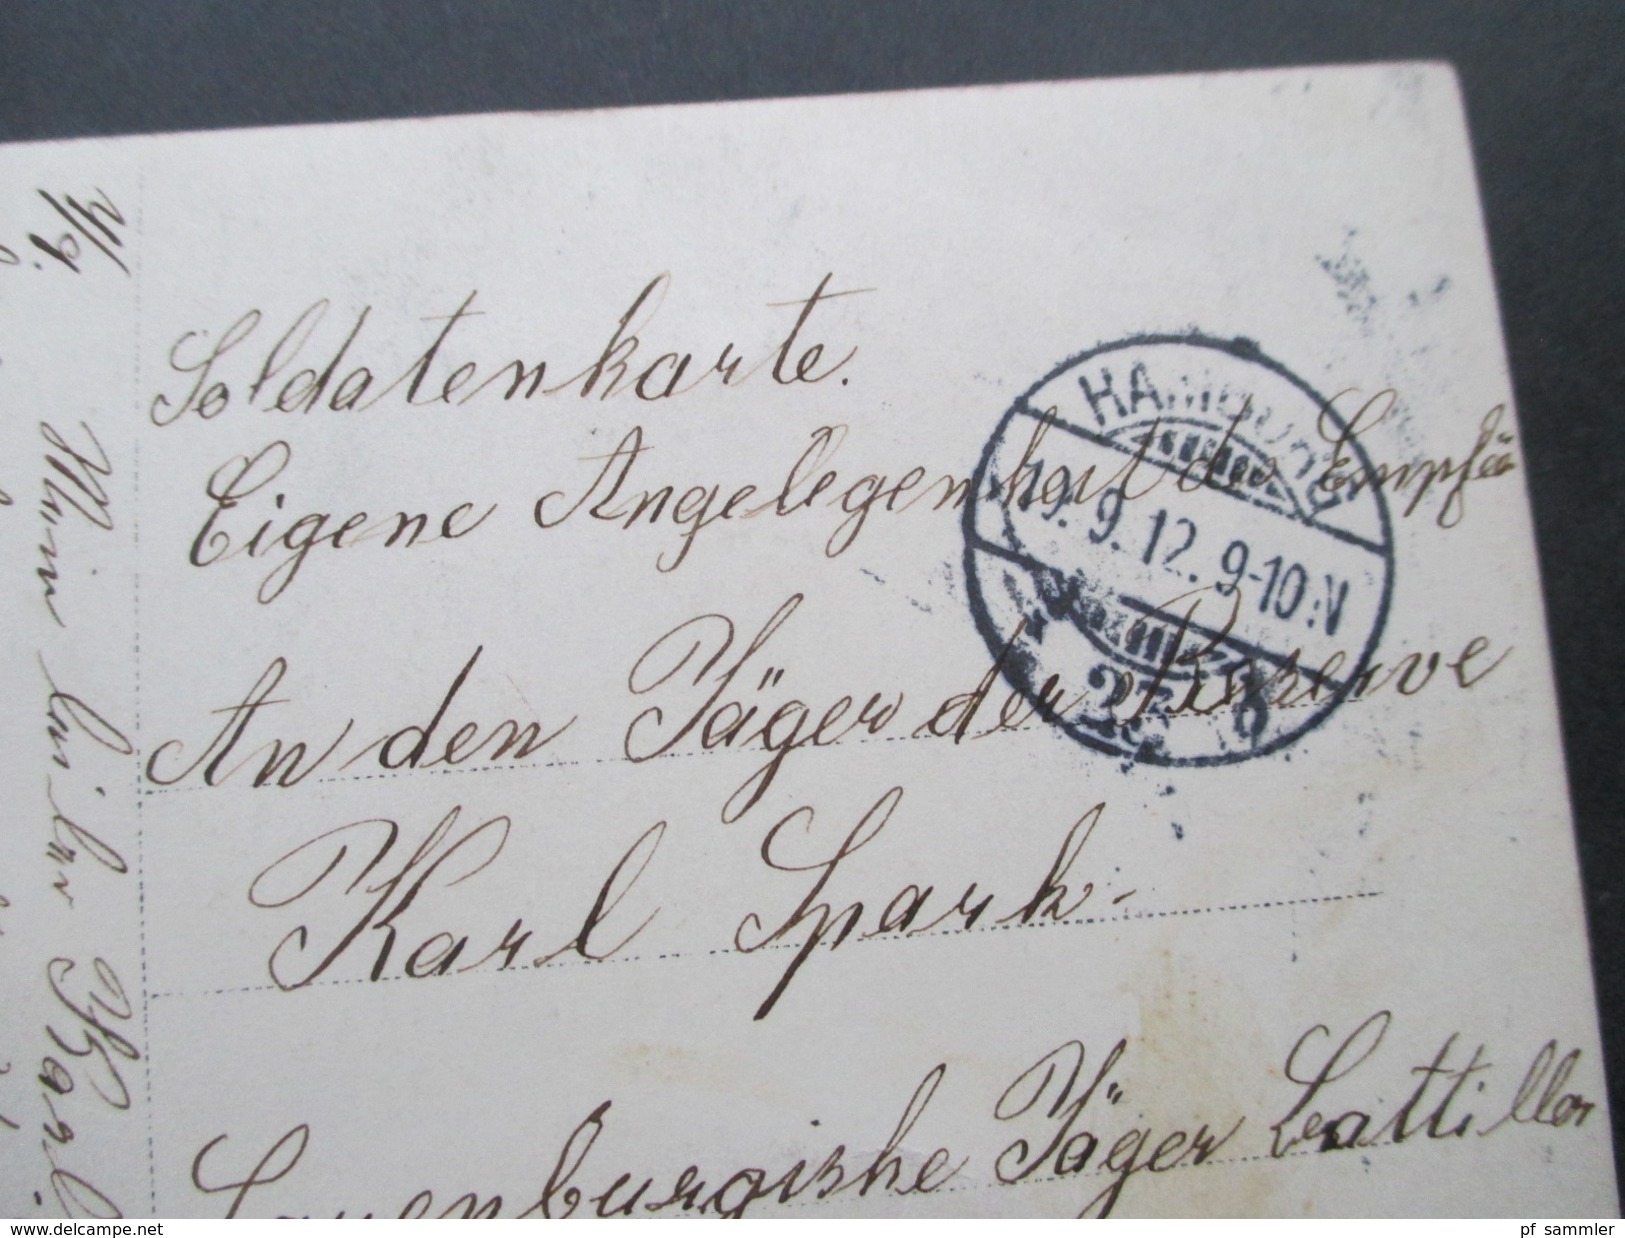 Soldatenkarte.
Eigene Angelegenheit de Empfä
An den Jäger der Reserve
Karl Spark
Lauenburgishe Jäger Battillon
HAMBURG
19. 9. 12. 9-10 N
Mein lieber Karl.
www.delcampe.net
pf_sammler